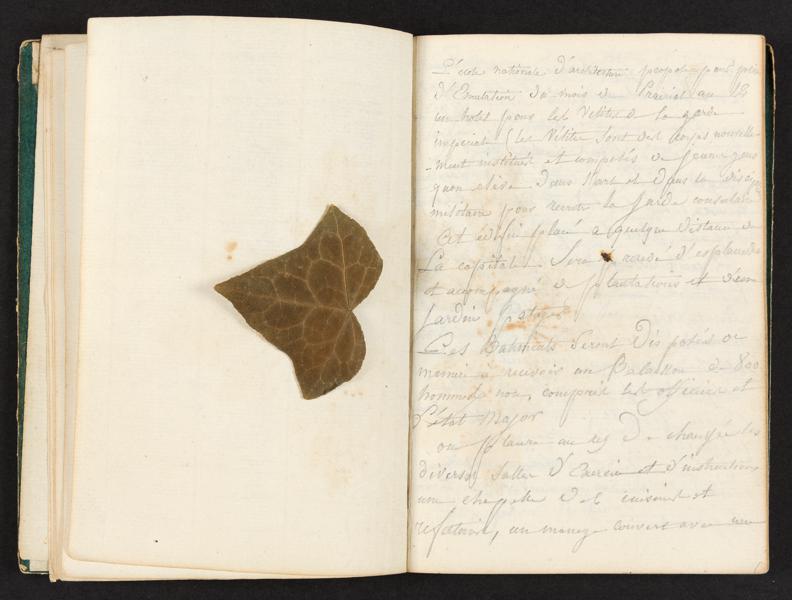 L'école nationale d'architecture propose pour prix
d'Emulation du mois de Prairial an 13
un hotel pour les Velites de la garde
imperial (les Velites sont des corps nouvelle-
-ment institués et composés de jeunes gens
quon eleve dans l'art et dans la discip
militaire pour recruter la garde consulaire
Cet édifice placé a quelque distance de
La capitale. Sera d'esplanades
et accompagné de plantations et d'un
Jardin potager
Ces Batiments seront disposés de
maniere à recevoir un Bataillon de 800
hommes non compris les officiers et
l'état Major
on placera au rez de chaussée les
diverses salles d'Exercice et d'instruction
une chapelle des cuisines et
refectoires, un manege couvert avec une